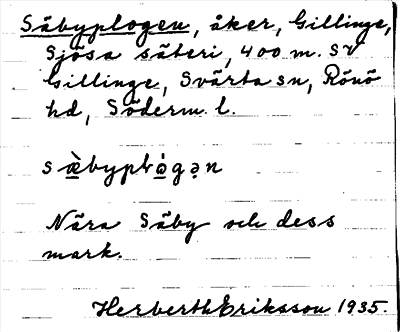 Säbyplogen, åker, Gillinge,
Sjösa säteri, 400 m. SV
Gillinge, Svärta sn, Rönö
hd, Söderm. l.
sæ̀byplógən
Nära Säby och dess
mark.
Herberth Eriksson 1935.